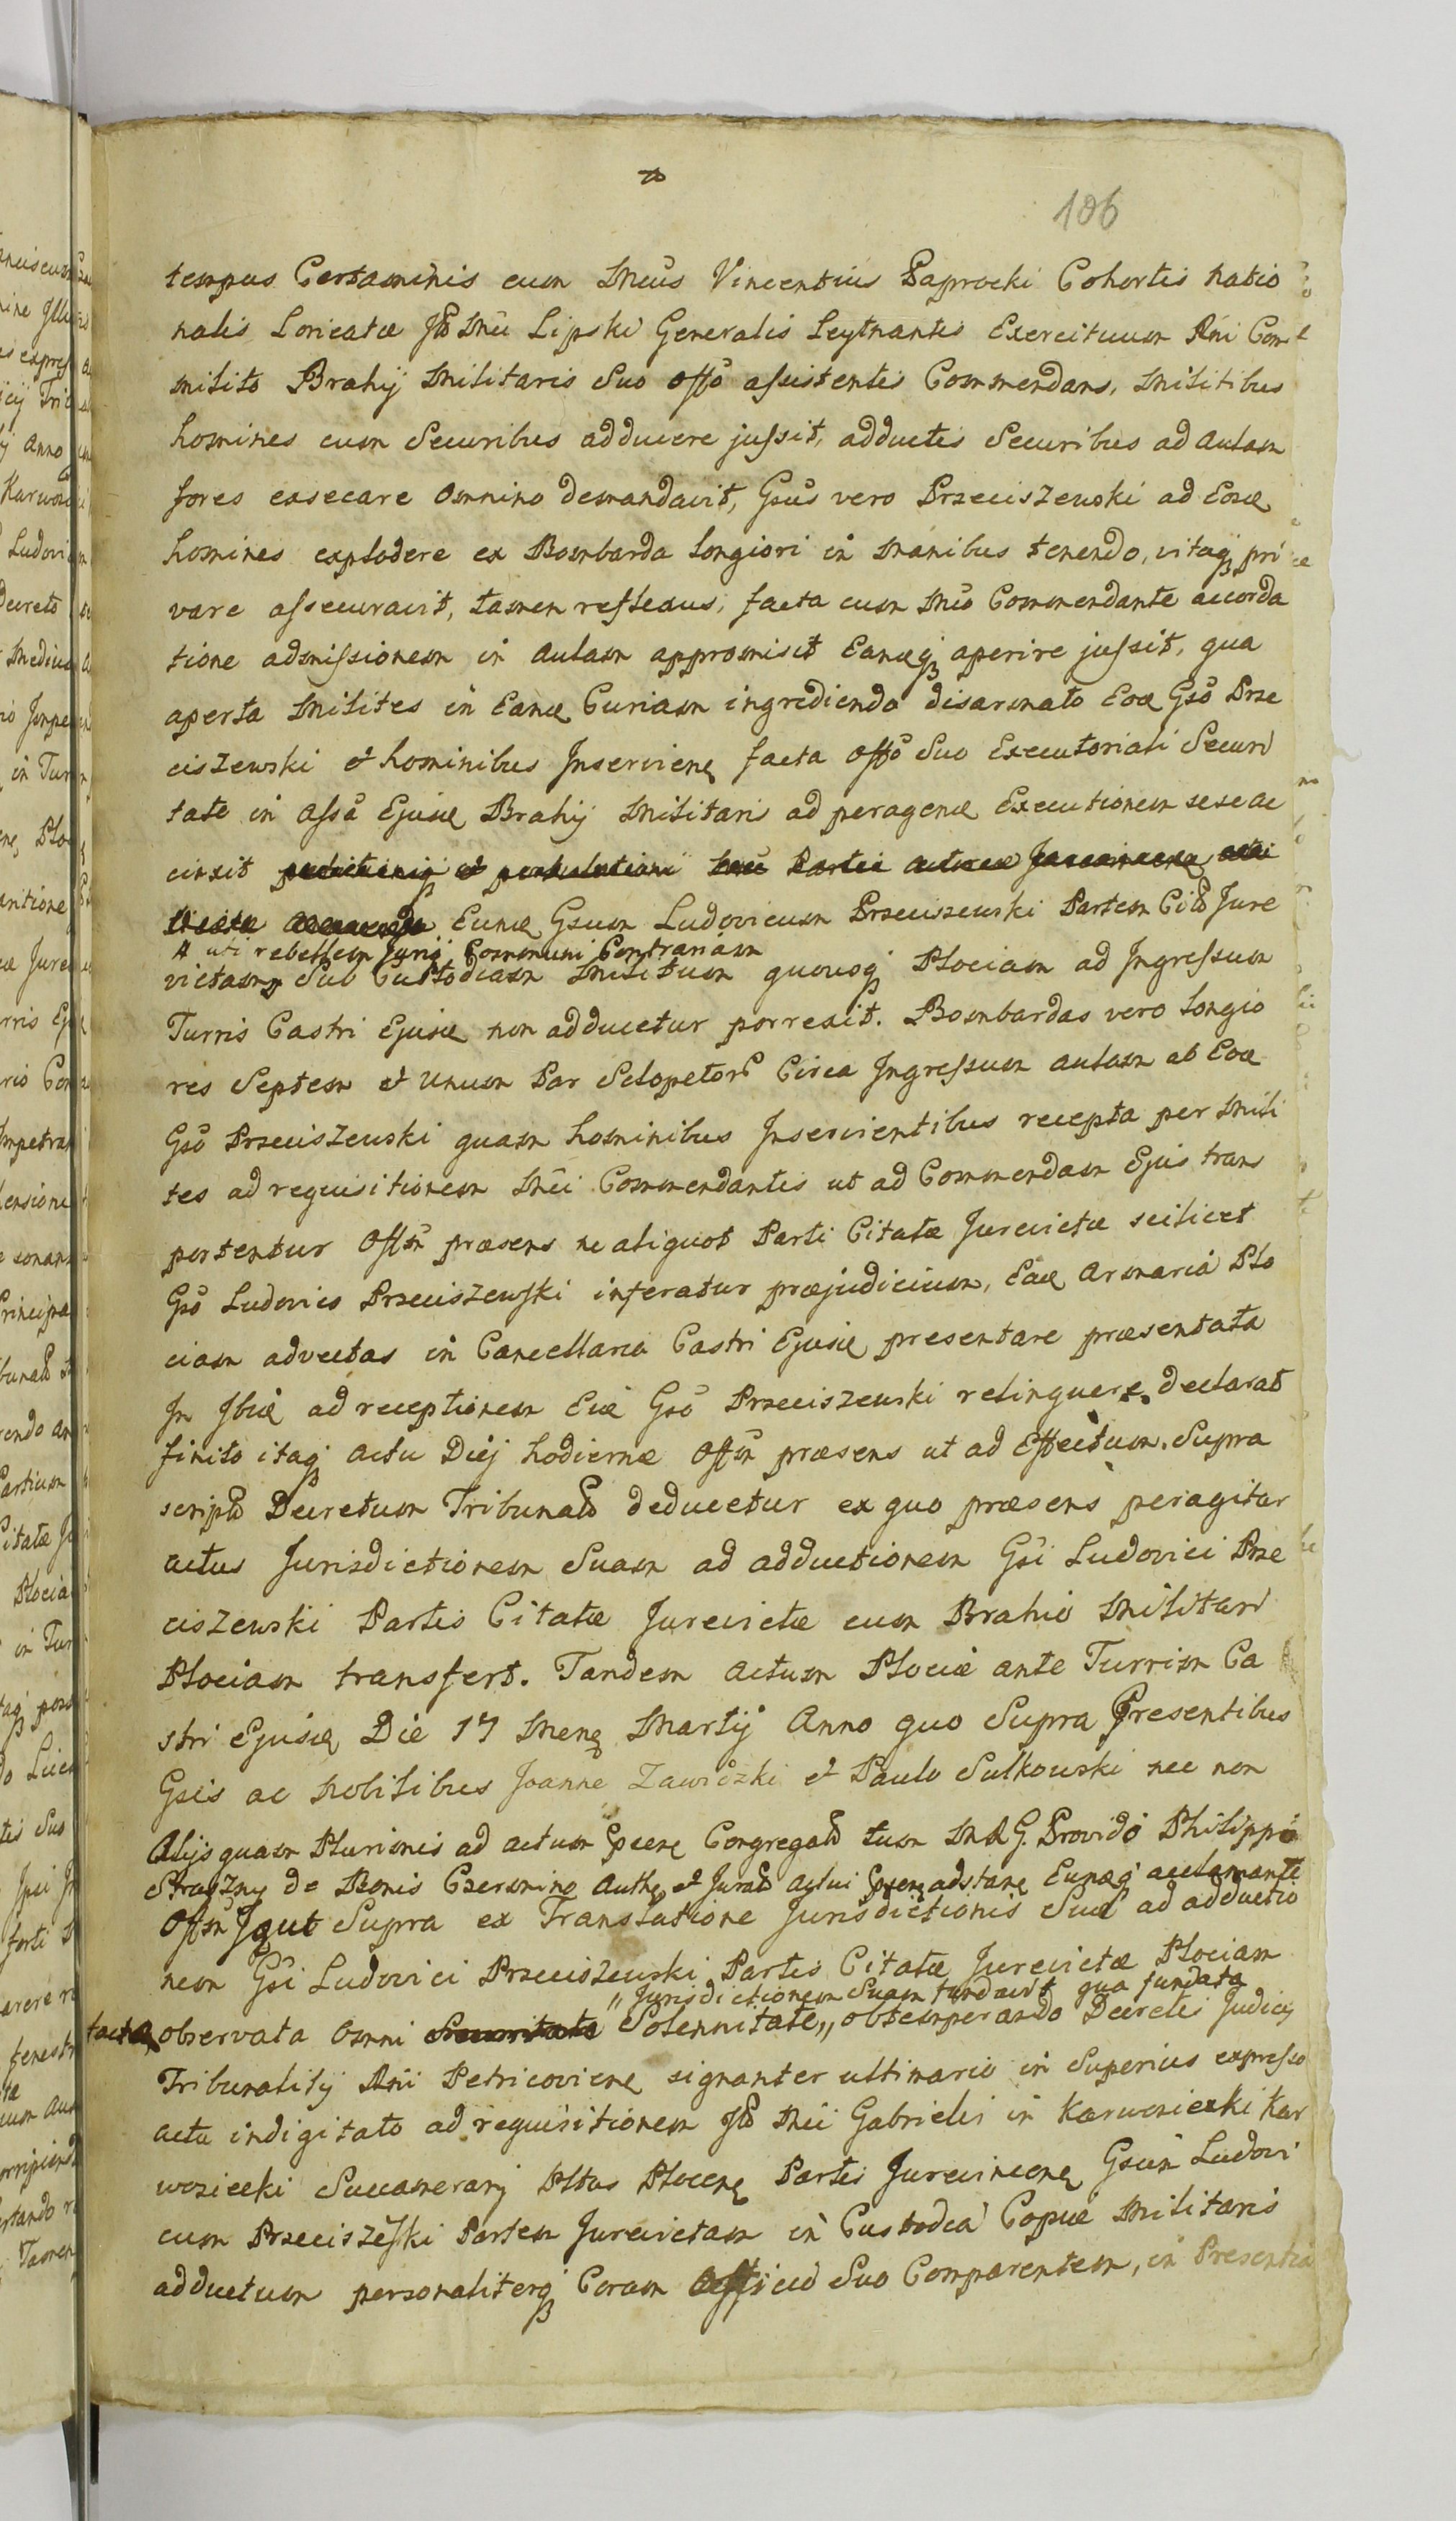 106
tempus Certaminis cum Mcus Vincentius Paprocki Cohortis Natio
nalis Loricatæ Mci Lipski Generalis Leytnantis Exercituum Rni Com
milito Brahij Militaris Suo Offo assistentis Commendans, Militibus
homines cum Securibus adducere jussit, adductis Securibus ad Aulam
fores exsecare Omnino demandavit, Gsus vero Przeciszewski ad Eosd
homines explodere ex Bombarda longiori in Manibus tenendo, vitaq pri
vare assecuravit, tamen reflexus, facta cum Mco Commendante accorda
tione admissionem in Aulam appromisit Eamq aperire jussit, qua
aperta Milites in Eand Curiam ingrediendo disarmato Eod Gso Prze
ciszewski et hominibus Inservien facta Offo Suo Executoriali Securi
tate in Assa Ejusd Brahij Militaris ad peragend Executionem sese ac
cinxit
Eund Gsum Ludovicum Przeciszewski Partem Cit Jure
uti rebellem Juriq Communi Contrariam
victam Sub Custodiam Militum quousq Plociam ad Ingressum
Turris Castri Ejusd non adducetur porrexit. Bombardas vero longio
res Septem et Unum Par Sclopetor Circa Ingressum aulam ab Eod
Gso Przeciszewski quam hominibus Inservientibus recepta per Mili
tes ad requisitionem Mci Commendantis ut ad Commendam Ejus trans
portentur Offm præsens ne aliquot Parti Citatæ Jurevictæ scilicet
Gso Ludovico Przeciszewski inferatur præjudicium, Ead Armaria Plo
ciam advectas in Cancellaria Castri Ejusd presentare præsentata
In Ibid ad receptionem Eid Gso Przeciszewski relinquere declarat
finito itaq Actu Diej hodiernæ Offm præsens ut ad Effectum Supra
script Decretum Tribunal deducetur ex quo præsens peragitur
actus Jurisdictionem Suam ad adductionem Gsi Ludovici Prze
ciszewski Partis Citatæ Jurevictæ cum Brahio Militari
Plociam transfert. Tandem Actum Plociæ ante Turrim Ca
stri Ejusd Die 17 Mens Martij Anno quo Supra Presentibus
Gsis ac Nobilibus Joanne Zawidzki et Paulo Sulkowski nec non
Alijs quam Plurimis ad actum Congregat tum M. R. G. Provido Philippo
Straszny de Bonis Czermino Auth et Jurat Actui adstan Eumq acclamante
Offm ut Supra ex Translatione Jurisdictionis Suæ ad adductio
nem Gsi Ludovici Przeciszewski Partis Citatæ Jurevictæ Plociam
" Jurisdictionem Suam fundavit qua fundata
tactaq observata Omni Securitate Solennitate " obtemperando Decretis Judicij
Tribunalitij Rni Petricovien signanter ultimario in Superius expresso
actu indigitato ad requisitionem Mci Gabrielis in Karwosiecki Kar
wosiecki Succamerarij Pltus Plocen Partis Jurevincen Gsum Ludovi
cum Przeciszewski Partem Jurevictam in Custodia Copiæ Militaris
adductum personaliterq Coram Officio Suo Comparentem, in Presentia